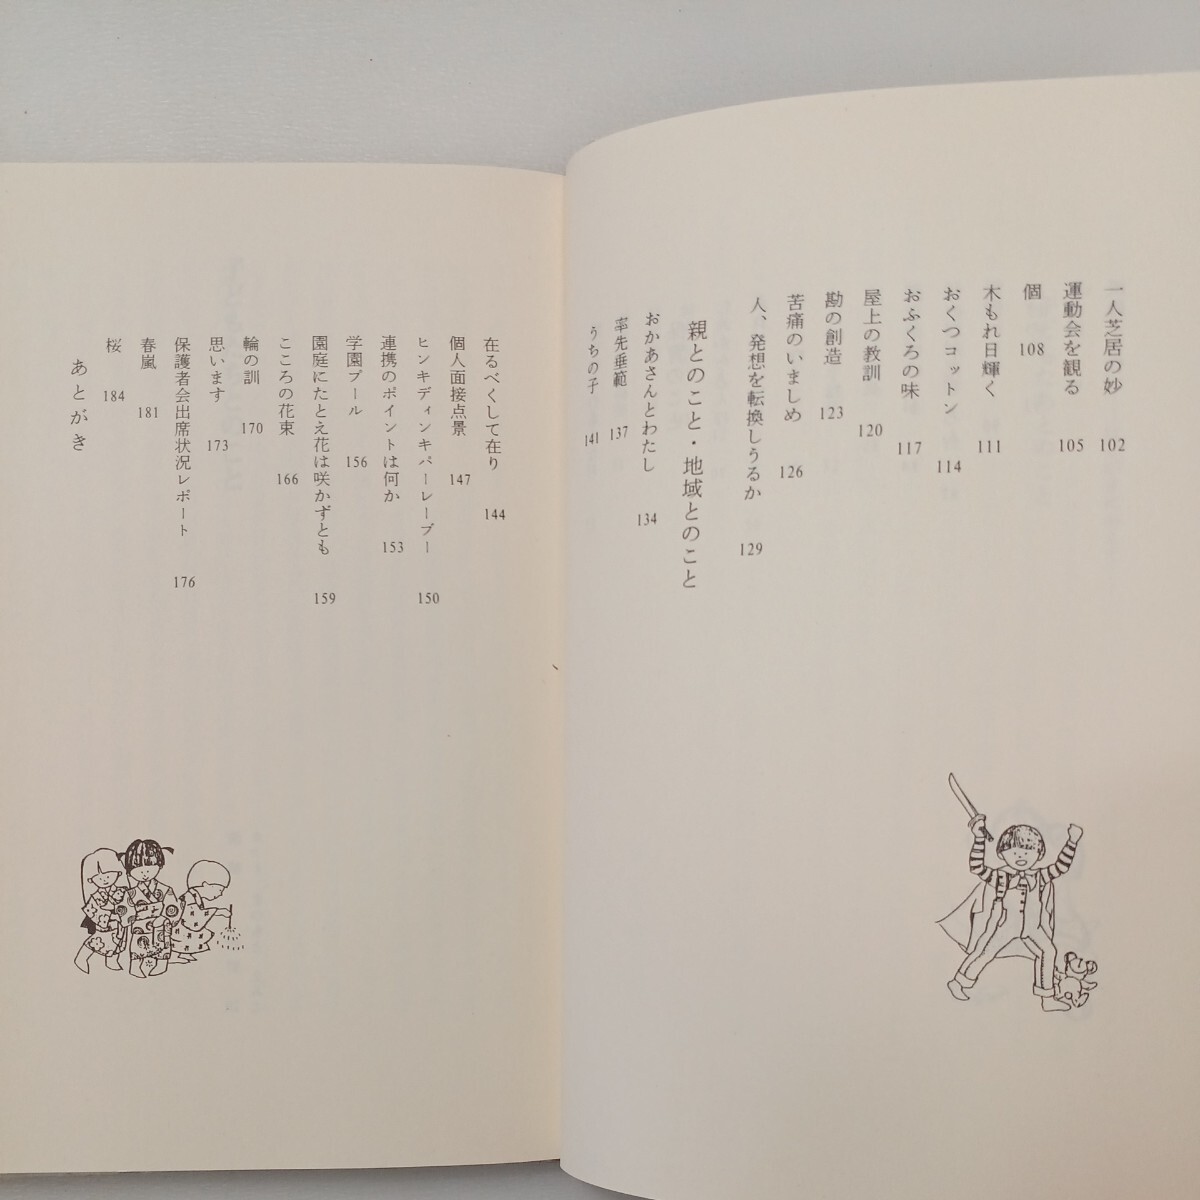 一人芝居の妙 102
運動会を観る 105
個 108
木もれ日輝く 111
おくつコットン 114
おふくろの味 117
屋上の教訓 120
勘の創造 123
苦痛のいましめ 126
人、発想を転換しうるか 129
親とのこと・地域とのこと
おかあさんとわたし 134
率先垂範 137
うちの子 141
在るべくして在り 144
個人面接点景 147
ヒンキディンキパーレーブー 150
連携のポイントは何か 153
学園プール 156
園庭にたとえ花は咲かずとも 159
こころの花束 166
輪の訓 170
思います 173
保護者会出席状況レポート 176
春嵐 181
桜 184
あとがき